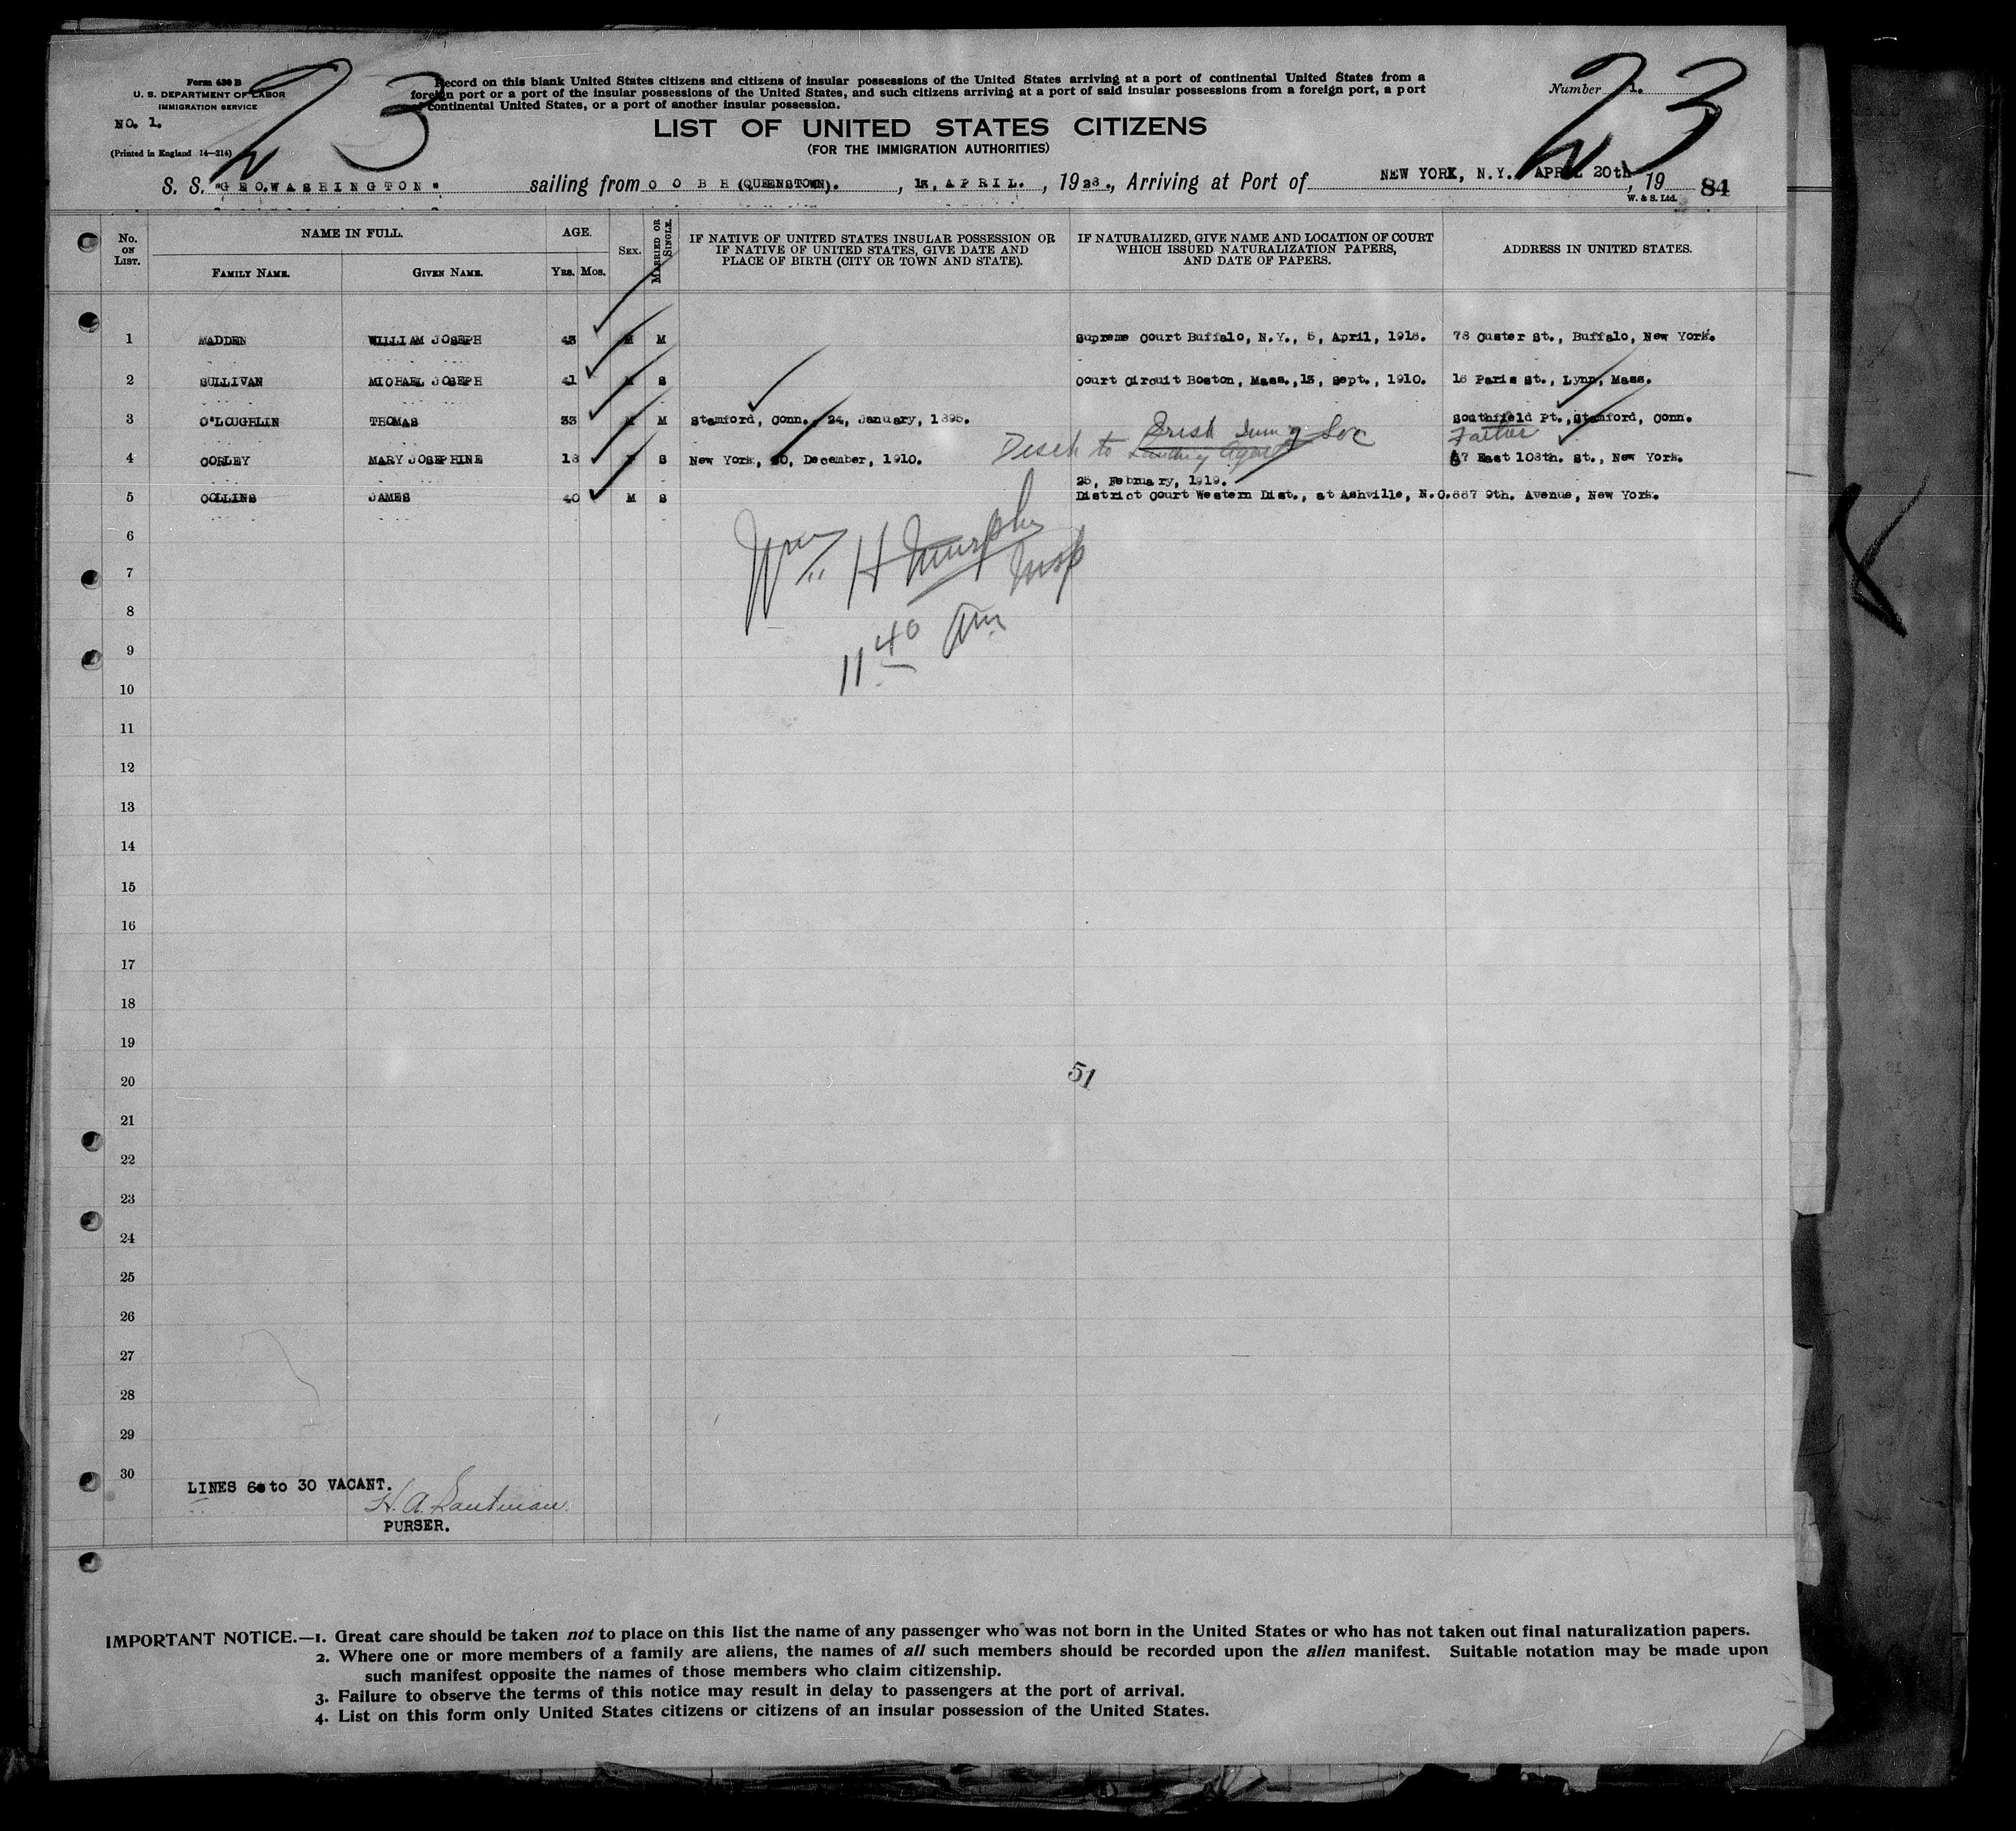 Form 630 B
U. S. DEPARTMENT OF LABOR
IMMIGRATION SERVICE
NO. 1.
(Printed in England 14—214)
23
Record on this blank United States citizens and citizens of insular possessions of the United States arriving at a port of continental United States from a
foreign port or a port of the insular possessions of the United States, and such citizens arriving at a port of said insular possessions from a foreign port, a port
of continental United States, or a port of another insular possession.
Number 1.
23
LIST OF UNITED STATES CITIZENS
(FOR THE IMMIGRATION AUTHORITIES)
S. S. "GEO.WASHINGTON" sailing from COBH (QUEENSTOWN)., 13, APRIL., 1928., Arriving at Port of NEW YORK, N.Y. APRIL 20th, 19
W. & S. Ltd.
84
No. ON LIST. NAME IN FULL. FAMILY NAME. GIVEN NAME. AGE. YRS. MOS. SEX. MARRIED OR SINGLE. IF NATIVE OF UNITED STATES INSULAR POSSESSION OR IF NATIVE OF UNITED STATES, GIVE DATE AND PLACE OF BIRTH (CITY OR TOWN AND STATE). IF NATURALIZED, GIVE NAME AND LOCATION OF COURT WHICH ISSUED NATURALIZATION PAPERS, AND DATE OF PAPERS. ADDRESS IN UNITED STATES.
1 MADDEN WILLIAM JOSEPH 43 M M Supreme Court Buffalo, N.Y., 5, April, 1918. 78 Custer St., Buffalo, New York.
2 SULLIVAN MICHAEL JOSEPH 41 M S Court Circuit Boston, Mass., 13, Sept., 1910. 18 Paris St., Lynn, Mass.
3 O'LOUGHLIN THOMAS 33 M M Stamford, Conn., 24, January, 1895. Southfield Pt., Stamford, Conn.
Disch to Landing Agent Irish Immig Soc Father
4 CORLEY MARY JOSEPHINE 18 F S New York, 20, December, 1910. 67 East 108th. St., New York.
25, February, 1919.
5 COLLINS JAMES 40 M S District Court Western Dist., at Ashville, N.C. 667 9th. Avenue, New York.
6
Wm H Murphy
7
Insp
8
11 40 am
9
10
11
12
13
14
15
16
17
18
19
20
51
21
22
23
24
25
26
27
28
29
30
LINES 6 to 30 VACANT.
H. A. Lautman
PURSER.
IMPORTANT NOTICE.—1. Great care should be taken not to place on this list the name of any passenger who was not born in the United States or who has not taken out final naturalization papers.
2. Where one or more members of a family are aliens, the names of all such members should be recorded upon the alien manifest. Suitable notation may be made upon
such manifest opposite the names of those members who claim citizenship.
3. Failure to observe the terms of this notice may result in delay to passengers at the port of arrival.
4. List on this form only United States citizens or citizens of an insular possession of the United States.